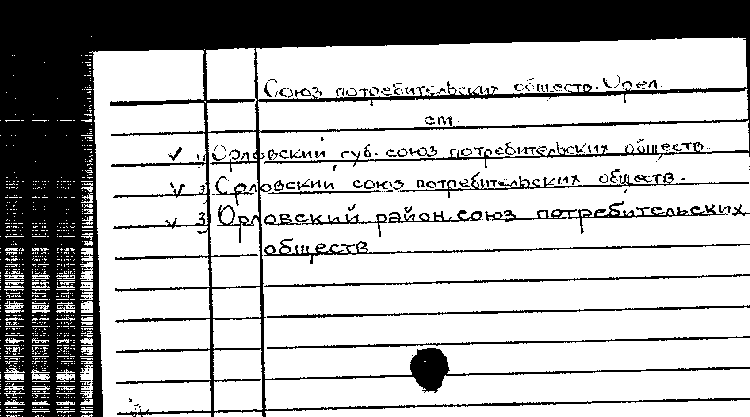 Союз потребительских обществ. Орел.
см.
✓ 1) Орловский губ. союз потребительских обществ.
✓ 2) Орловский союз потребительских обществ.
✓ 3) Орловский район. союз потребительских
обществ